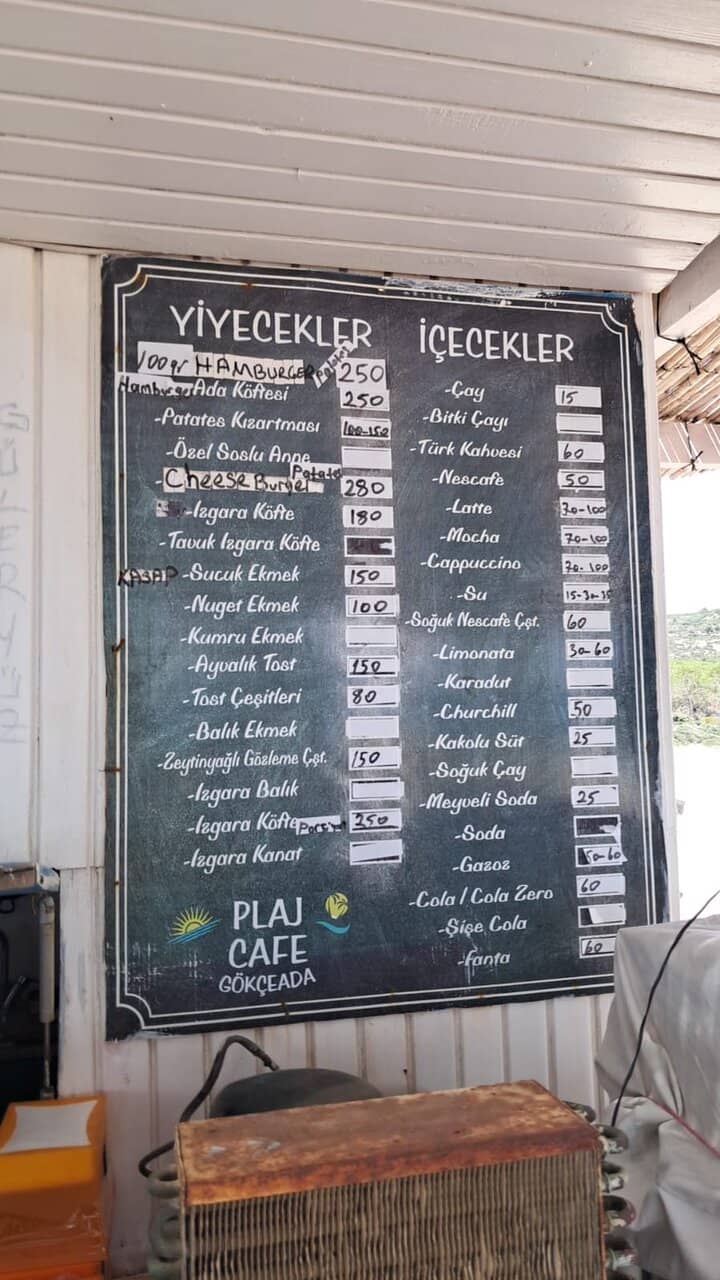 YİYECEKLER
100gr HAMBURGER Patates 250
Hamburger Ada Köftesi 250
-Patates Kızartması 100-150
-Özel Soslu Anne
-Cheese Burger Patates 280
-Izgara Köfte 180
-Tavuk Izgara Köfte
KASAP -Sucuk Ekmek 150
-Nuget Ekmek 100
-Kumru Ekmek
-Ayvalık Tost 150
-Tost Çeşitleri 80
-Balık Ekmek
-Zeytinyağlı Gözleme Çşt. 150
-Izgara Balık
-Izgara Köfte 250
-Izgara Kanat
PLAJ
CAFE
GÖKÇEADA
İÇECEKLER
-Çay 15
-Bitki Çayı
-Türk Kahvesi 60
-Nescafe 50
-Latte 70-100
-Mocha 70-100
-Cappuccino 70-100
-Su 15-30-35
-Soğuk Nescafe Çşt. 60
-Limonata 30-60
-Karadut
-Churchill 50
-Kakolu Süt 25
-Soğuk Çay
-Meyveli Soda 25
-Soda
-Gazoz 50-60
-Cola / Cola Zero 60
-Şişe Cola
-Fanta 60